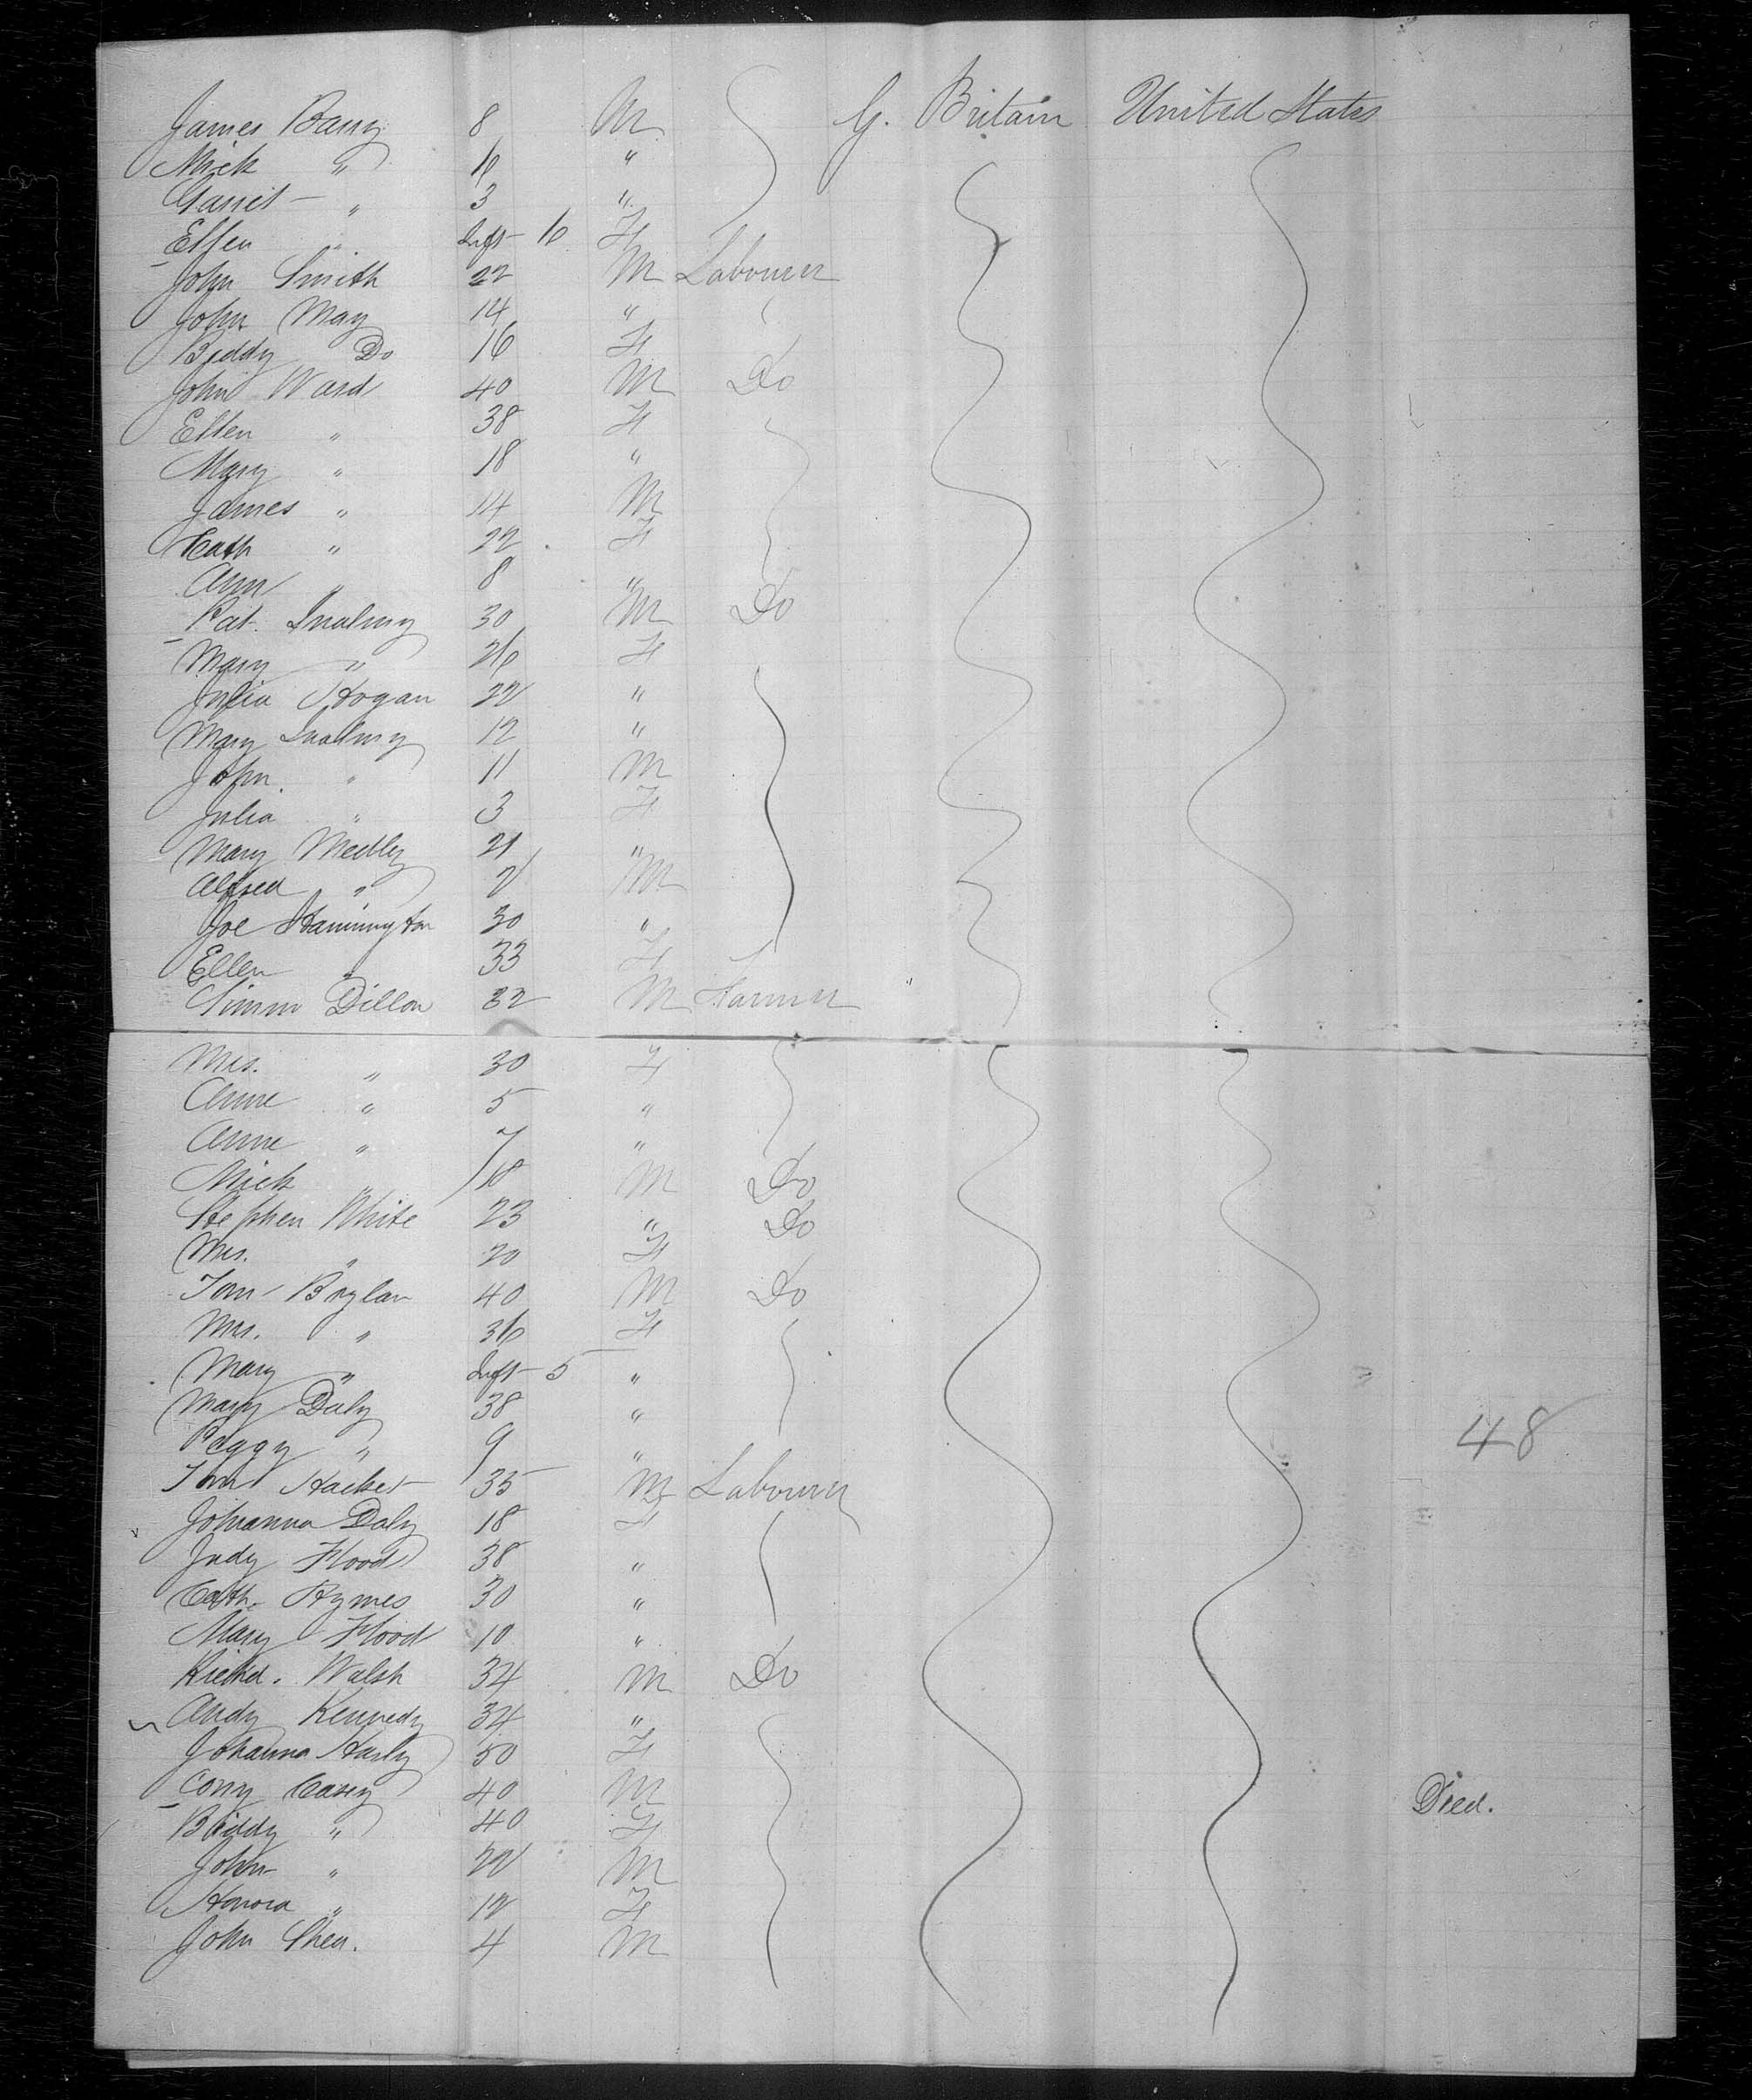 James Barry 8 M G. Britain United States
Mick " 6 "
Garret " 3 "
Ellen " Inft 10 F
John Smith 22 M Labourer
John May 14 "
Biddy Do 16 F
John Ward 40 M Do
Ellen " 38 F
Mary " 18 "
James " 14 M
Cath " 22 F
Ann " 8 "
Pat. 30 M Do
Mary " 26 F
Julia Hogan 22 "
Mary 12 "
John " 11 M
Julia " 3 F
Mary Medley 21 "
Alfred " 2 M
Joe Hannington 30 "
Ellen " 33 F
Simm Dillon 32 M Farmer
Mrs. " 30 F
Anne " 5 "
Anne " 7 "
Mick " 18 M Do
Stephen White 23 " Do
Mrs. " 20 F
Tom Boylan 40 M Do
Mrs. " 36 F
Mary " Inft 5 "
Mary Daly 38 "
Peggy " 9 " 48
Tom Hacket 35 M Labourer
Johanna Daly 18 F
Judy Flood 38 "
Cath. Hymes 30 "
Mary Flood 10 "
Richd. Walsh 34 M Do
Andy Kennedy 34 "
Johanna Harly 50 F
Cony Casey 40 M Died.
Biddy " 40 F
John " 22 M
Honora " 12 F
John Shea. 4 M